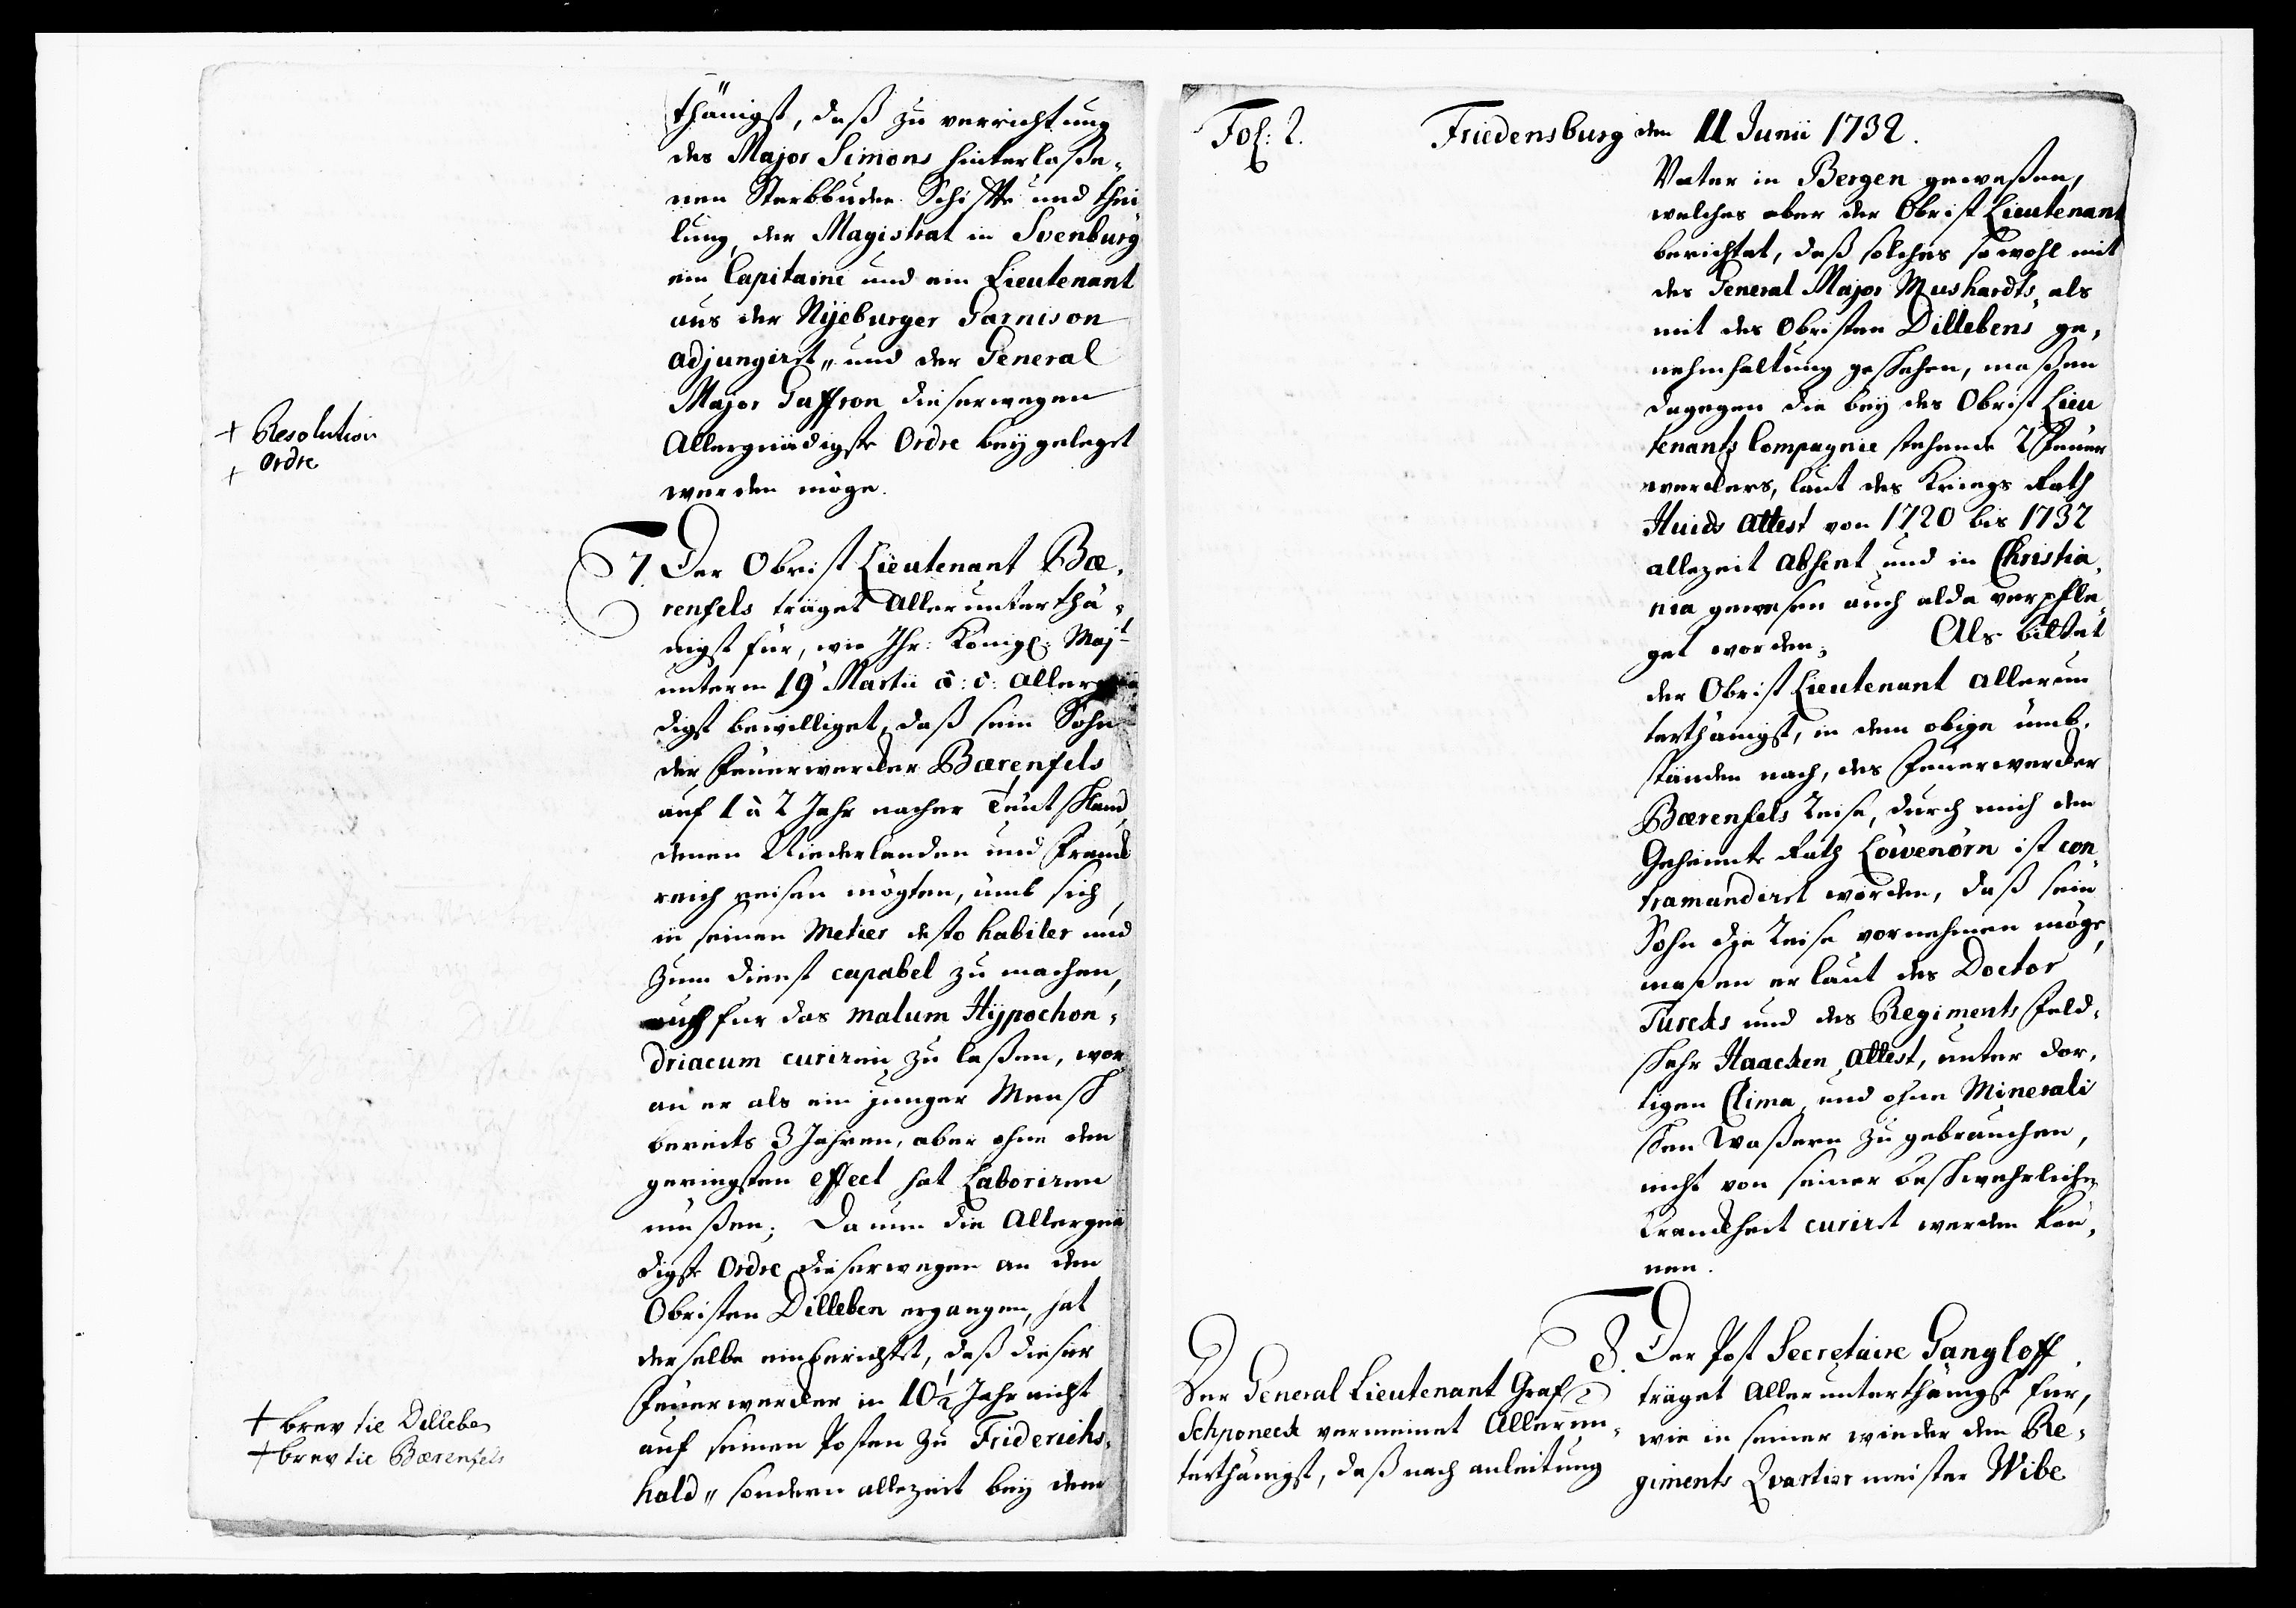 thänigst, daß zu verrichtung
des Major Simons hinterlaße-
nen Sterbbuden Schiffte und thei
lung, der Magistrat in Svenburg
ein Capitaine und ein Lieutenant
aus der Nyeburger Garnison
adjungirt,, und der General
Major Gaffron dieserwegen
Allergnädigste Ordre beygeleget
werden möge.
+ Resolution
+ Ordre
7. Der Obrist Lieutenant Bæ-
renfels träget Allerunterthä-
nigst für, wie Ihr: Königl: Majt
unterm 19 Martii a: c: allergnä
digst bewilliget, daß sein Sohn
der Feuerwercker Bærenfels
auf 1 à 2 Jahr nacher Teutschland
denen Niederlanden und Franck
reich reisen mögten, umb sich
in seinen Metier desto habiler und
zum dienst capabel zu machen,
auch für das malum Hypochon-
driacum curiren zu laßen, wor
an er als ein junger Mensch
bereits 3 Jahren, aber ohne den
geringsten effect hat Laboriren
müßen; Da nun die Allergnä
digste Ordre dieserwegen an den
Obristen Dilleben ergangen, hat
derselbe einberichtet, daß dieser
Feuerwercker in 10½ Jahr nicht
auf seinen Posten zu Friderichs-
hald,, sondern allezeit bey dem
+ brev tie Dilleben
+ brev tie Bærenfels
Fol: 2.
Friedensburg den 11 Junii 1732.
Vater in Bergen geweßen,
welches aber der Obrist Lieutenant
berichtet, daß solches sowohl mit
des General Major Mushardts, als
mit des Obristen Dillebens ge-
nehmhaltung geschehen, maßen
dagegen die bey des Obrist Lieu
tenants Compagnie stehende 2 Feuer
werckers, laut des Kriegs Rath
Huids Attest von 1720 bis 1732
allezeit absent und in Christia-
nia gewesen auch alda verpfle-
get worden; Als bittet
der Obrist Lieutenant allerun
terthänigst, in dem obige umb-
ständen nach, des Feuerwercker
Bærenfels Reise, durch mich den
Geheimte Rath Löwenörn ist con-
tramandirt worden, daß sein
Sohn die Reise vornehmen möge,
maßen er laut des Doctor
Turcks und des Regiments Feld-
schehr Haacken Attest, unter dor-
tigen Clima, und ohne Minerali
schen Waßern zu gebrauchen,
nicht von seiner beschwehrlichen
Kranckheit curirt werden kön-
nen.
8. Der Post Secretaire Gangloff
träget Allerunterthänigst für,
wie in seiner wieder den Re-
giments Qvartiermeister Wibe
Der General Lieutenant Graf
Schponeck vermeinet Allerun-
terthänigst, daß nach anleitung